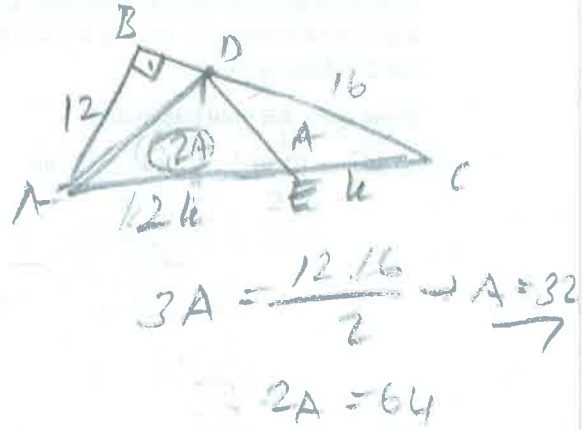 B
D
12
16
2A
A
A
E
k
C
2k
3A = 12.16 / 2 → A = 32
2A = 64